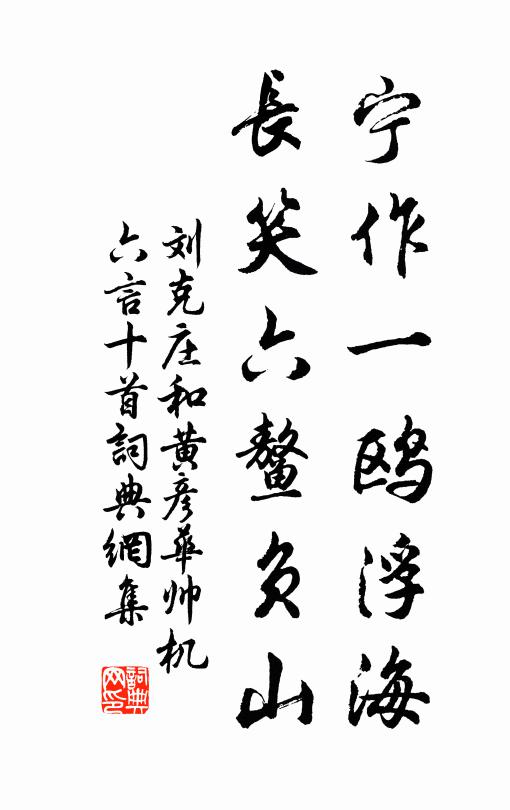 宁作一鸥浮海
長笑六鳌负山
刘克庄和黄彦華帅机
六言十首詞典網集
詞典
网印